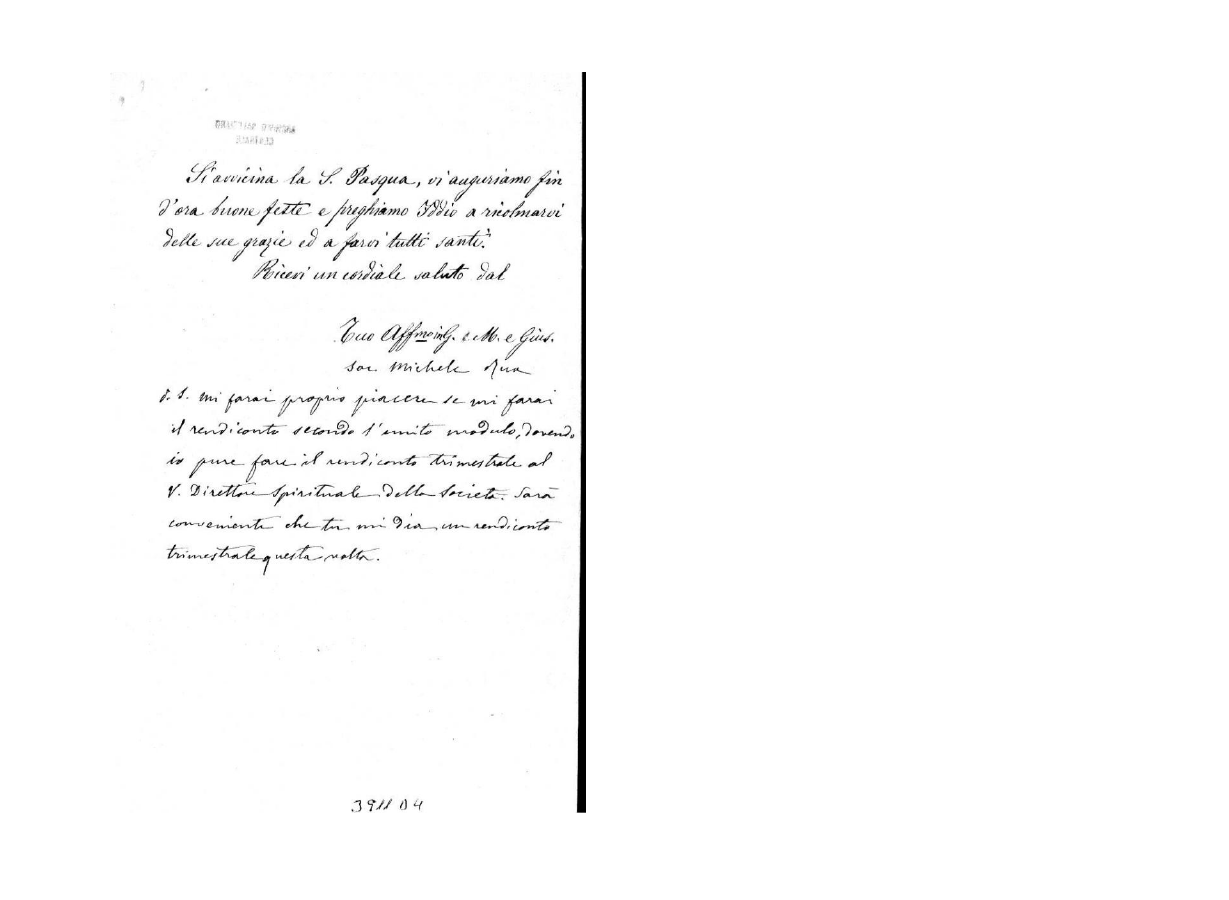 S'avvicina la S. Pasqua, vi auguriamo fin
d'ora buone feste e preghiamo Iddio a ricolmarvi
delle sue grazie ed a farvi tutti santi.
Ricevi un cordiale saluto dal
Tuo Affmo in G. e M. e Gius.
Sac. Michele Rua
P. S. Mi farai proprio piacere se mi farai
il rendiconto secondo l'unito modulo, dovendo
io pure fare il rendiconto trimestrale al
V. Direttore Spirituale della Società. Sarà
conveniente che tu mi dia un rendiconto
trimestrale questa volta.
3911 D4